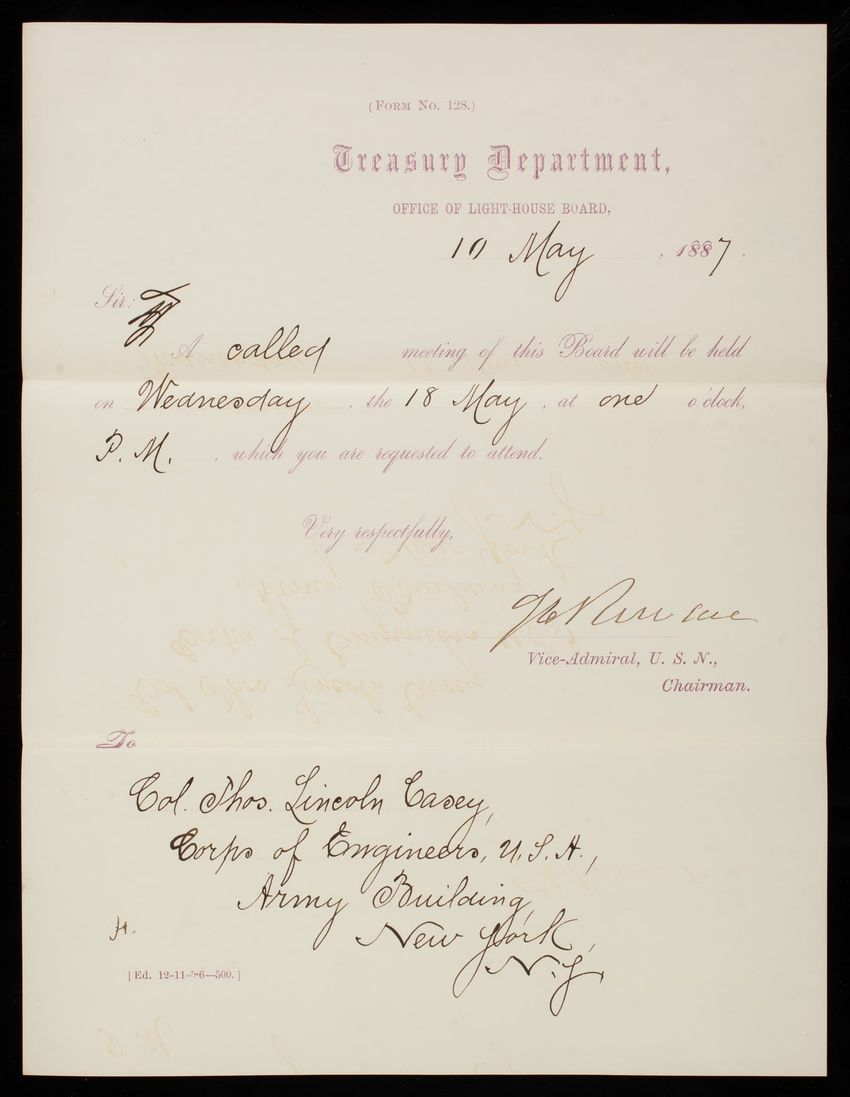 (FORM NO. 128.)
Treasury Department,
OFFICE OF LIGHT-HOUSE BOARD,
10 May , 1887.
Sir:
A called meeting of this Board will be held
on Wednesday , the 18 May , at one o'clock,
P. M. , which you are requested to attend.
Very respectfully,
Vice-Admiral, U. S. N.,
Chairman.
To
Col. Thos. Lincoln Casey,
Corps of Engineers, U.S.A.,
Army Building,
New York,
N.Y.
[Ed. 12-11-'86—500.]